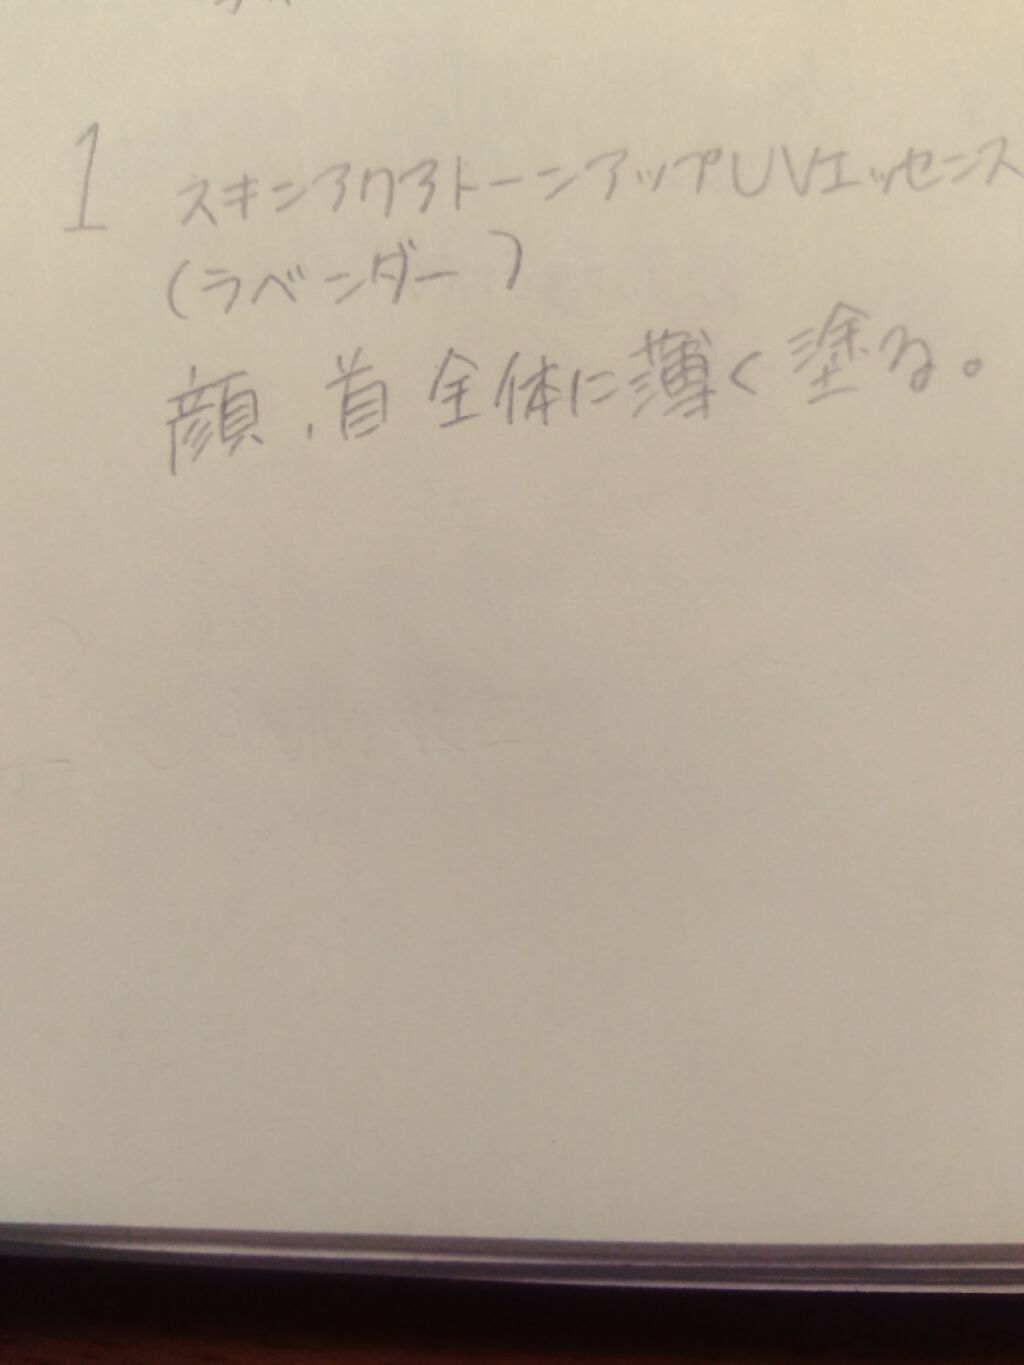 1 スキンアクアトーンアップUVエッセンス
(ラベンダー)
顔、首全体に薄く塗る。